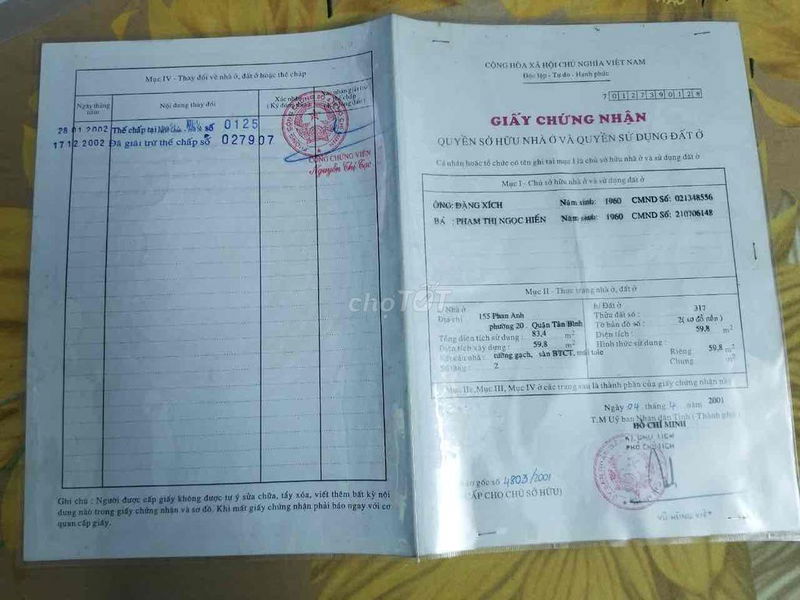 Mục IV - Thay đổi về nhà ở, đất ở hoặc thế chấp
Ngày tháng năm
Nội dung thay đổi
Xác nhận
28.01.2002 Thế chấp tại số 0125
17.12.2002 Đã giải trừ thế chấp số 027907
CÔNG CHỨNG VIÊN
Nguyễn Thị Tạc
Ghi chú : Người được cấp giấy không được tự ý sửa chữa, tẩy xóa, viết thêm bất kỳ nội
dung nào trong giấy chứng nhận và sơ đồ. Khi mất giấy chứng nhận phải báo ngay với cơ
quan cấp giấy.
CỘNG HÒA XÃ HỘI CHỦ NGHĨA VIỆT NAM
Độc lập - Tự do - Hạnh phúc
7 0 1 2 7 3 9 0 1 2 8
GIẤY CHỨNG NHẬN
QUYỀN SỞ HỮU NHÀ Ở VÀ QUYỀN SỬ DỤNG ĐẤT Ở
Cá nhân hoặc tổ chức có tên ghi tại mục I là chủ sở hữu nhà ở và sử dụng đất ở
Mục I - Chủ sở hữu nhà ở và sử dụng đất ở
ÔNG: ĐẶNG XÍCH Năm sinh: 1960 CMND Số: 021348556
BÀ : PHẠM THỊ NGỌC HIỀN Năm sinh: 1960 CMND Số: 210706148
Mục II - Thực trạng nhà ở, đất ở
a/ Nhà ở
Địa chỉ 155 Phan Anh
phường 20 Quận Tân Bình
Tổng diện tích sử dụng : 83,4 m2
Diện tích xây dựng : 59,8 m2
Kết cấu nhà : tường gạch, sàn BTCT, mái tole
Số tầng : 2
b/ Đất ở
Thửa đất số : 317
Tờ bản đồ số : 2( sơ đồ nền )
Diện tích : 59,8 m2
Hình thức sử dụng :
Riêng : 59,8 m2
Chung : m2
Mục IIc, Mục III, Mục IV ở các trang sau là thành phần của giấy chứng nhận này
Ngày 04 tháng 4 năm 2001
T.M Uỷ ban Nhân dân Tỉnh ( Thành phố )
HỒ CHÍ MINH
KT. CHỦ TỊCH
PHÓ CHỦ TỊCH
gốc số 4803/2001
(CẤP CHO CHỦ SỞ HỮU)
VŨ HÙNG VIỆT
choTỐT